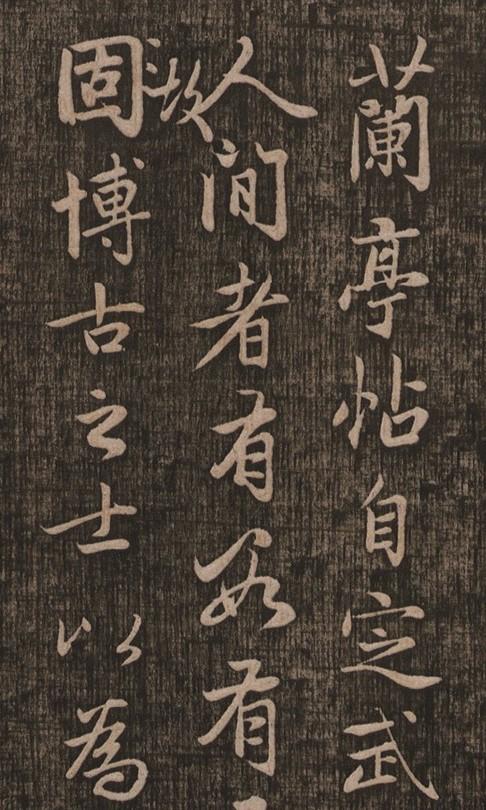 蘭亭帖自定武
人間者有數有
故
固博古之士以為